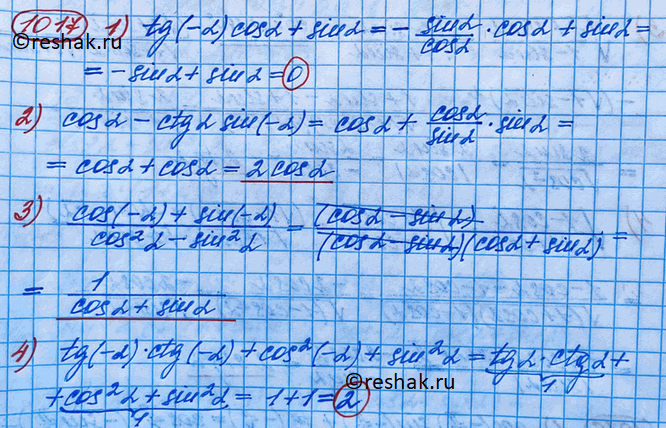 1017 1) tg(-α)cosα + sinα = - sinα/cosα · cosα + sinα =
= -sinα + sinα = 0
2) cosα - ctgα sin(-α) = cosα + cosα/sinα · sinα =
= cosα + cosα = 2cosα
3) (cos(-α) + sin(-α))/(cos²α - sin²α) = (cosα - sinα)/((cosα - sinα)(cosα + sinα)) =
= 1/(cosα + sinα)
4) tg(-α)·ctg(-α) + cos²(-α) + sin²α = tgα·ctgα +
1
+ cos²α + sin²α = 1+1 = 2
1
©reshak.ru